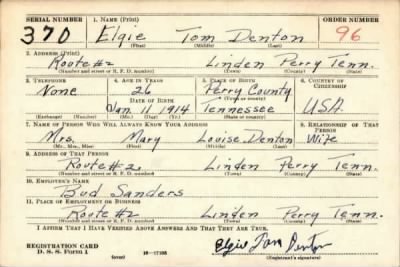 SERIAL NUMBER 1. NAME (Print) ORDER NUMBER
370 Elgie Tom Denton 96
(First) (Middle) (Last)
2. ADDRESS (Print)
Route #2 Linden Perry Tenn.
(Number and street or R. F. D. number) (Town) (County) (State)
3. TELEPHONE 4. AGE IN YEARS 5. PLACE OF BIRTH 6. COUNTRY OF CITIZENSHIP
None 26 Perry County
DATE OF BIRTH
Jan. 11, 1914 Tennessee USA
7. NAME OF PERSON WHO WILL ALWAYS KNOW YOUR ADDRESS 8. RELATIONSHIP OF THAT PERSON
Mrs. Mary Louise Denton Wife
(Mr., Mrs., Miss) (First) (Middle) (Last)
9. ADDRESS OF THAT PERSON
Route #2, Linden Perry Tenn.
(Number and street or R. F. D. number) (Town) (County) (State)
10. EMPLOYER'S NAME
Bud Sanders
11. PLACE OF EMPLOYMENT OR BUSINESS
Route #2 Linden Perry Tenn.
(Number and street or R. F. D. number) (Town) (County) (State)
I AFFIRM THAT I HAVE VERIFIED ABOVE ANSWERS AND THAT THEY ARE TRUE.
REGISTRATION CARD Elgie Tom Denton
D. S. S. Form 1 (over) 16—17105 (Registrant's signature)